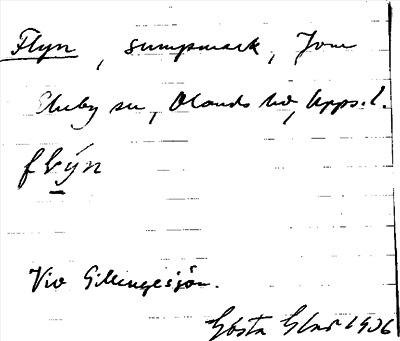 Flyn, sumpmark, Jom
Ekeby sn, Olands hd, Upps. l.
flýn
Vid Gillingesjön.
Gösta 1906